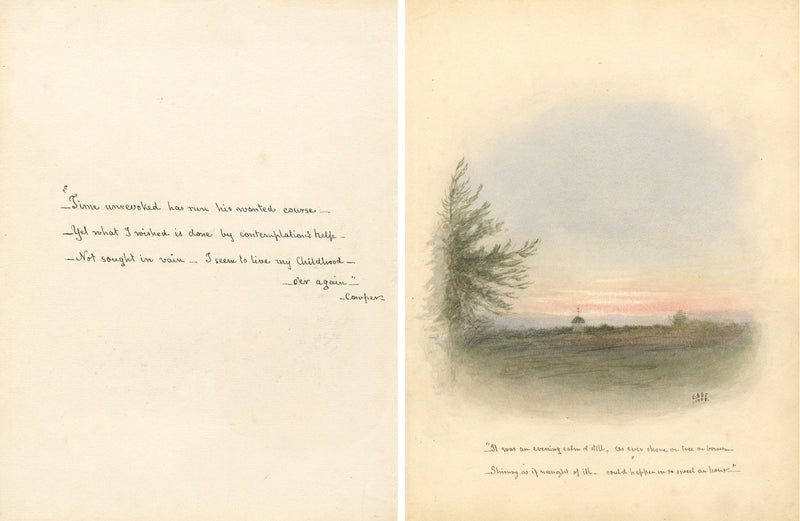 "Time unrevoked has run his wonted course –
– Yet what I wished is done by contemplation's help –
– Not sought in vain – I seem to live my Childhood –
– o'er again."
– Cowper –
"It was an evening calm & still, as ever shone on tree or bower
– Shining as if naught of ill – could happen in so sweet an hour –"